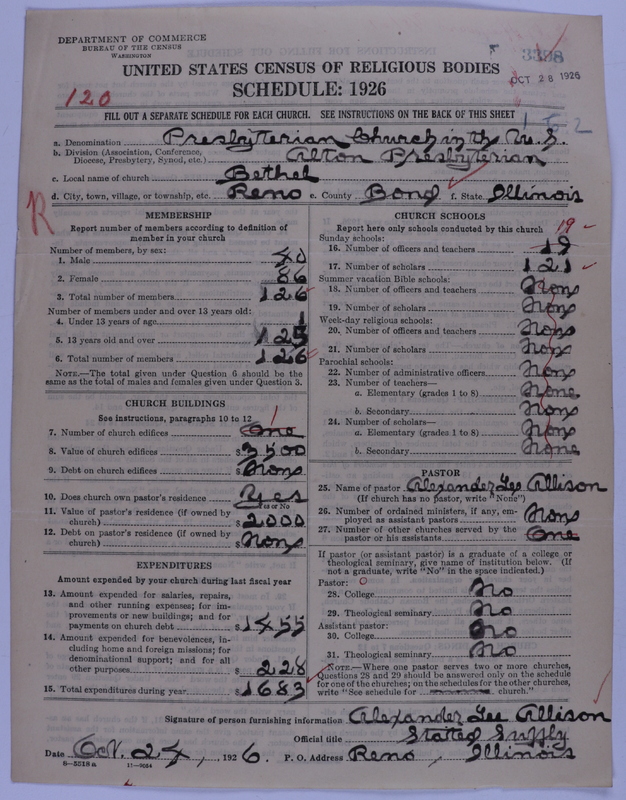 DEPARTMENT OF COMMERCE
BUREAU OF THE CENSUS
WASHINGTON
3398
OCT 28 1926
UNITED STATES CENSUS OF RELIGIOUS BODIES
SCHEDULE: 1926
120
FILL OUT A SEPARATE SCHEDULE FOR EACH CHURCH. SEE INSTRUCTIONS ON THE BACK OF THIS SHEET
a. Denomination Presbyterian Church in the U. S.
b. Division (Association, Conference, Diocese, Presbytery, Synod, etc.) Alton Presbyterian
c. Local name of church Bethel
d. City, town, village, or township, etc. Reno e. County Bond f. State Illinois
R
MEMBERSHIP
Report number of members according to definition of
member in your church
Number of members, by sex:
1. Male 40
2. Female 86
3. Total number of members 126
Number of members under and over 13 years old:
4. Under 13 years of age 1
5. 13 years old and over 125
6. Total number of members 126
NOTE.—The total given under Question 6 should be the
same as the total of males and females given under Question 3.
CHURCH BUILDINGS
See instructions, paragraphs 10 to 12
7. Number of church edifices One 1
8. Value of church edifices $ 3500
9. Debt on church edifices $ None
10. Does church own pastor's residence Yes
Yes or No
11. Value of pastor's residence (if owned by
church) $ 2000
12. Debt on pastor's residence (if owned by
church) $ None
EXPENDITURES
Amount expended by your church during last fiscal year
13. Amount expended for salaries, repairs,
and other running expenses; for im-
provements or new buildings; and for
payments on church debt $ 1455
14. Amount expended for benevolences, in-
cluding home and foreign missions; for
denominational support; and for all
other purposes $ 228
15. Total expenditures during year $ 1683
CHURCH SCHOOLS
Report here only schools conducted by this church
19
Sunday schools:
16. Number of officers and teachers 19
17. Number of scholars 121
Summer vacation Bible schools:
18. Number of officers and teachers None
19. Number of scholars None
Week-day religious schools:
20. Number of officers and teachers None
21. Number of scholars None
Parochial schools:
22. Number of administrative officers None
23. Number of teachers—
a. Elementary (grades 1 to 8) None
b. Secondary None
24. Number of scholars—
a. Elementary (grades 1 to 8) None
b. Secondary None
PASTOR
25. Name of pastor Alexander Lee Allison
(If church has no pastor, write "None")
26. Number of ordained ministers, if any, em-
ployed as assistant pastors None
27. Number of other churches served by the
pastor or his assistants One
If pastor (or assistant pastor) is a graduate of a college or
theological seminary, give name of institution below. (If
not a graduate, write "No" in the space indicated.)
Pastor: O
28. College No
29. Theological seminary No
Assistant pastor:
30. College No
31. Theological seminary No
NOTE.—Where one pastor serves two or more churches,
Questions 28 and 29 should be answered only on the schedule
for one of the churches; on the schedules for the other churches,
write "See schedule for church."
Signature of person furnishing information Alexander Lee Allison
Official title Stated Supply
Date Oct. 24, 1926. P. O. Address Reno, Illinois
8—5518 a 11—9034